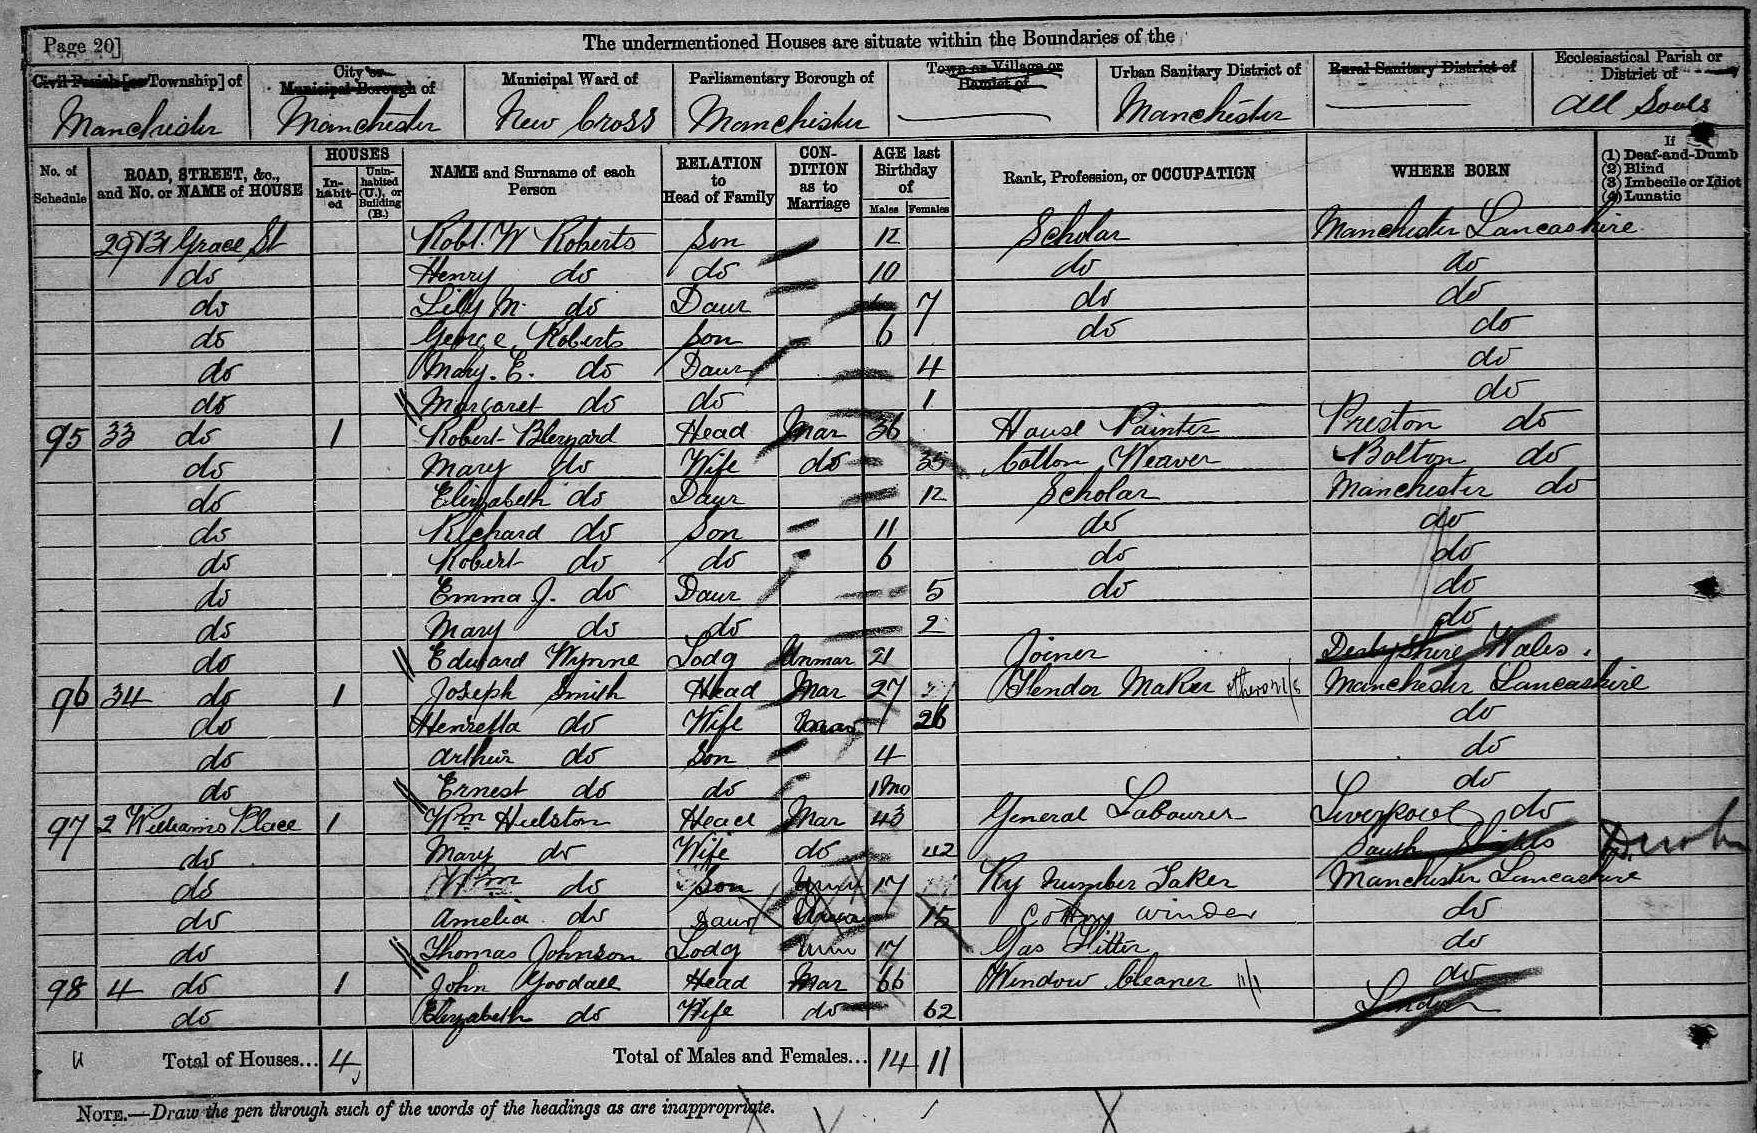 Page 20]
The undermentioned Houses are situate within the Boundaries of the
Civil Parish [or Township] of
City or Municipal Borough of
Municipal Ward of
Parliamentary Borough of
Town or Village or Hamlet of
Urban Sanitary District of
Rural Sanitary District of
Ecclesiastical Parish or District of
Manchester Manchester New Cross Manchester Manchester All Souls
No. of Schedule
ROAD, STREET, &c., and No. or NAME of HOUSE
HOUSES
In-habit-ed
Unin-habited (U.), or Building (B.)
NAME and Surname of each Person
RELATION to Head of Family
CON-DITION as to Marriage
AGE last Birthday of
Males Females
Rank, Profession, or OCCUPATION
WHERE BORN
If
(1) Deaf-and-Dumb
(2) Blind
(3) Imbecile or Idiot
(4) Lunatic
31 Grace St Robt. W Roberts Son 12 Scholar Manchester Lancashire
do Henry do do 10 do do
do Lily M. do Daur 7 do do
do George Roberts Son 6 do do
do Mary. E. do Daur 4 do
do Margaret do do 1 do
95 33 do 1 Robert Head Mar 36 House Painter Preston do
do Mary do Wife do 35 Cotton Weaver Bolton do
do Elizabeth do Daur 12 Scholar Manchester do
do Richard do Son 11 do do
do Robert do do 6 do do
do Emma J. do Daur 5 do do
do Mary do do 2 do
do Edward Wynne Lodg Unmar 21 Joiner Derbyshire Wales.
96 34 do 1 Joseph Smith Head Mar 27 Maker Manchester Lancashire
do Henrietta do Wife 26 do
do Arthur do Son 4 do
do Ernest do do 1 mo do
97 2 Williams Place 1 Wm Hulston Head Mar 43 General Labourer Liverpool do
do Mary do Wife do 42 South Shields
do Wm do Son Unm 17 Ry Number Taker Manchester Lancashire
do Amelia do Daur 15 Cotton Winder do
do Thomas Johnson Lodg Unm 17 Gas Fitter do
98 4 do 1 John Goodall Head Mar 66 Window Cleaner do
do Elizabeth do Wife do 62 London
Total of Houses... 4 Total of Males and Females... 14 11
NOTE.—Draw the pen through such of the words of the headings as are inappropriate.